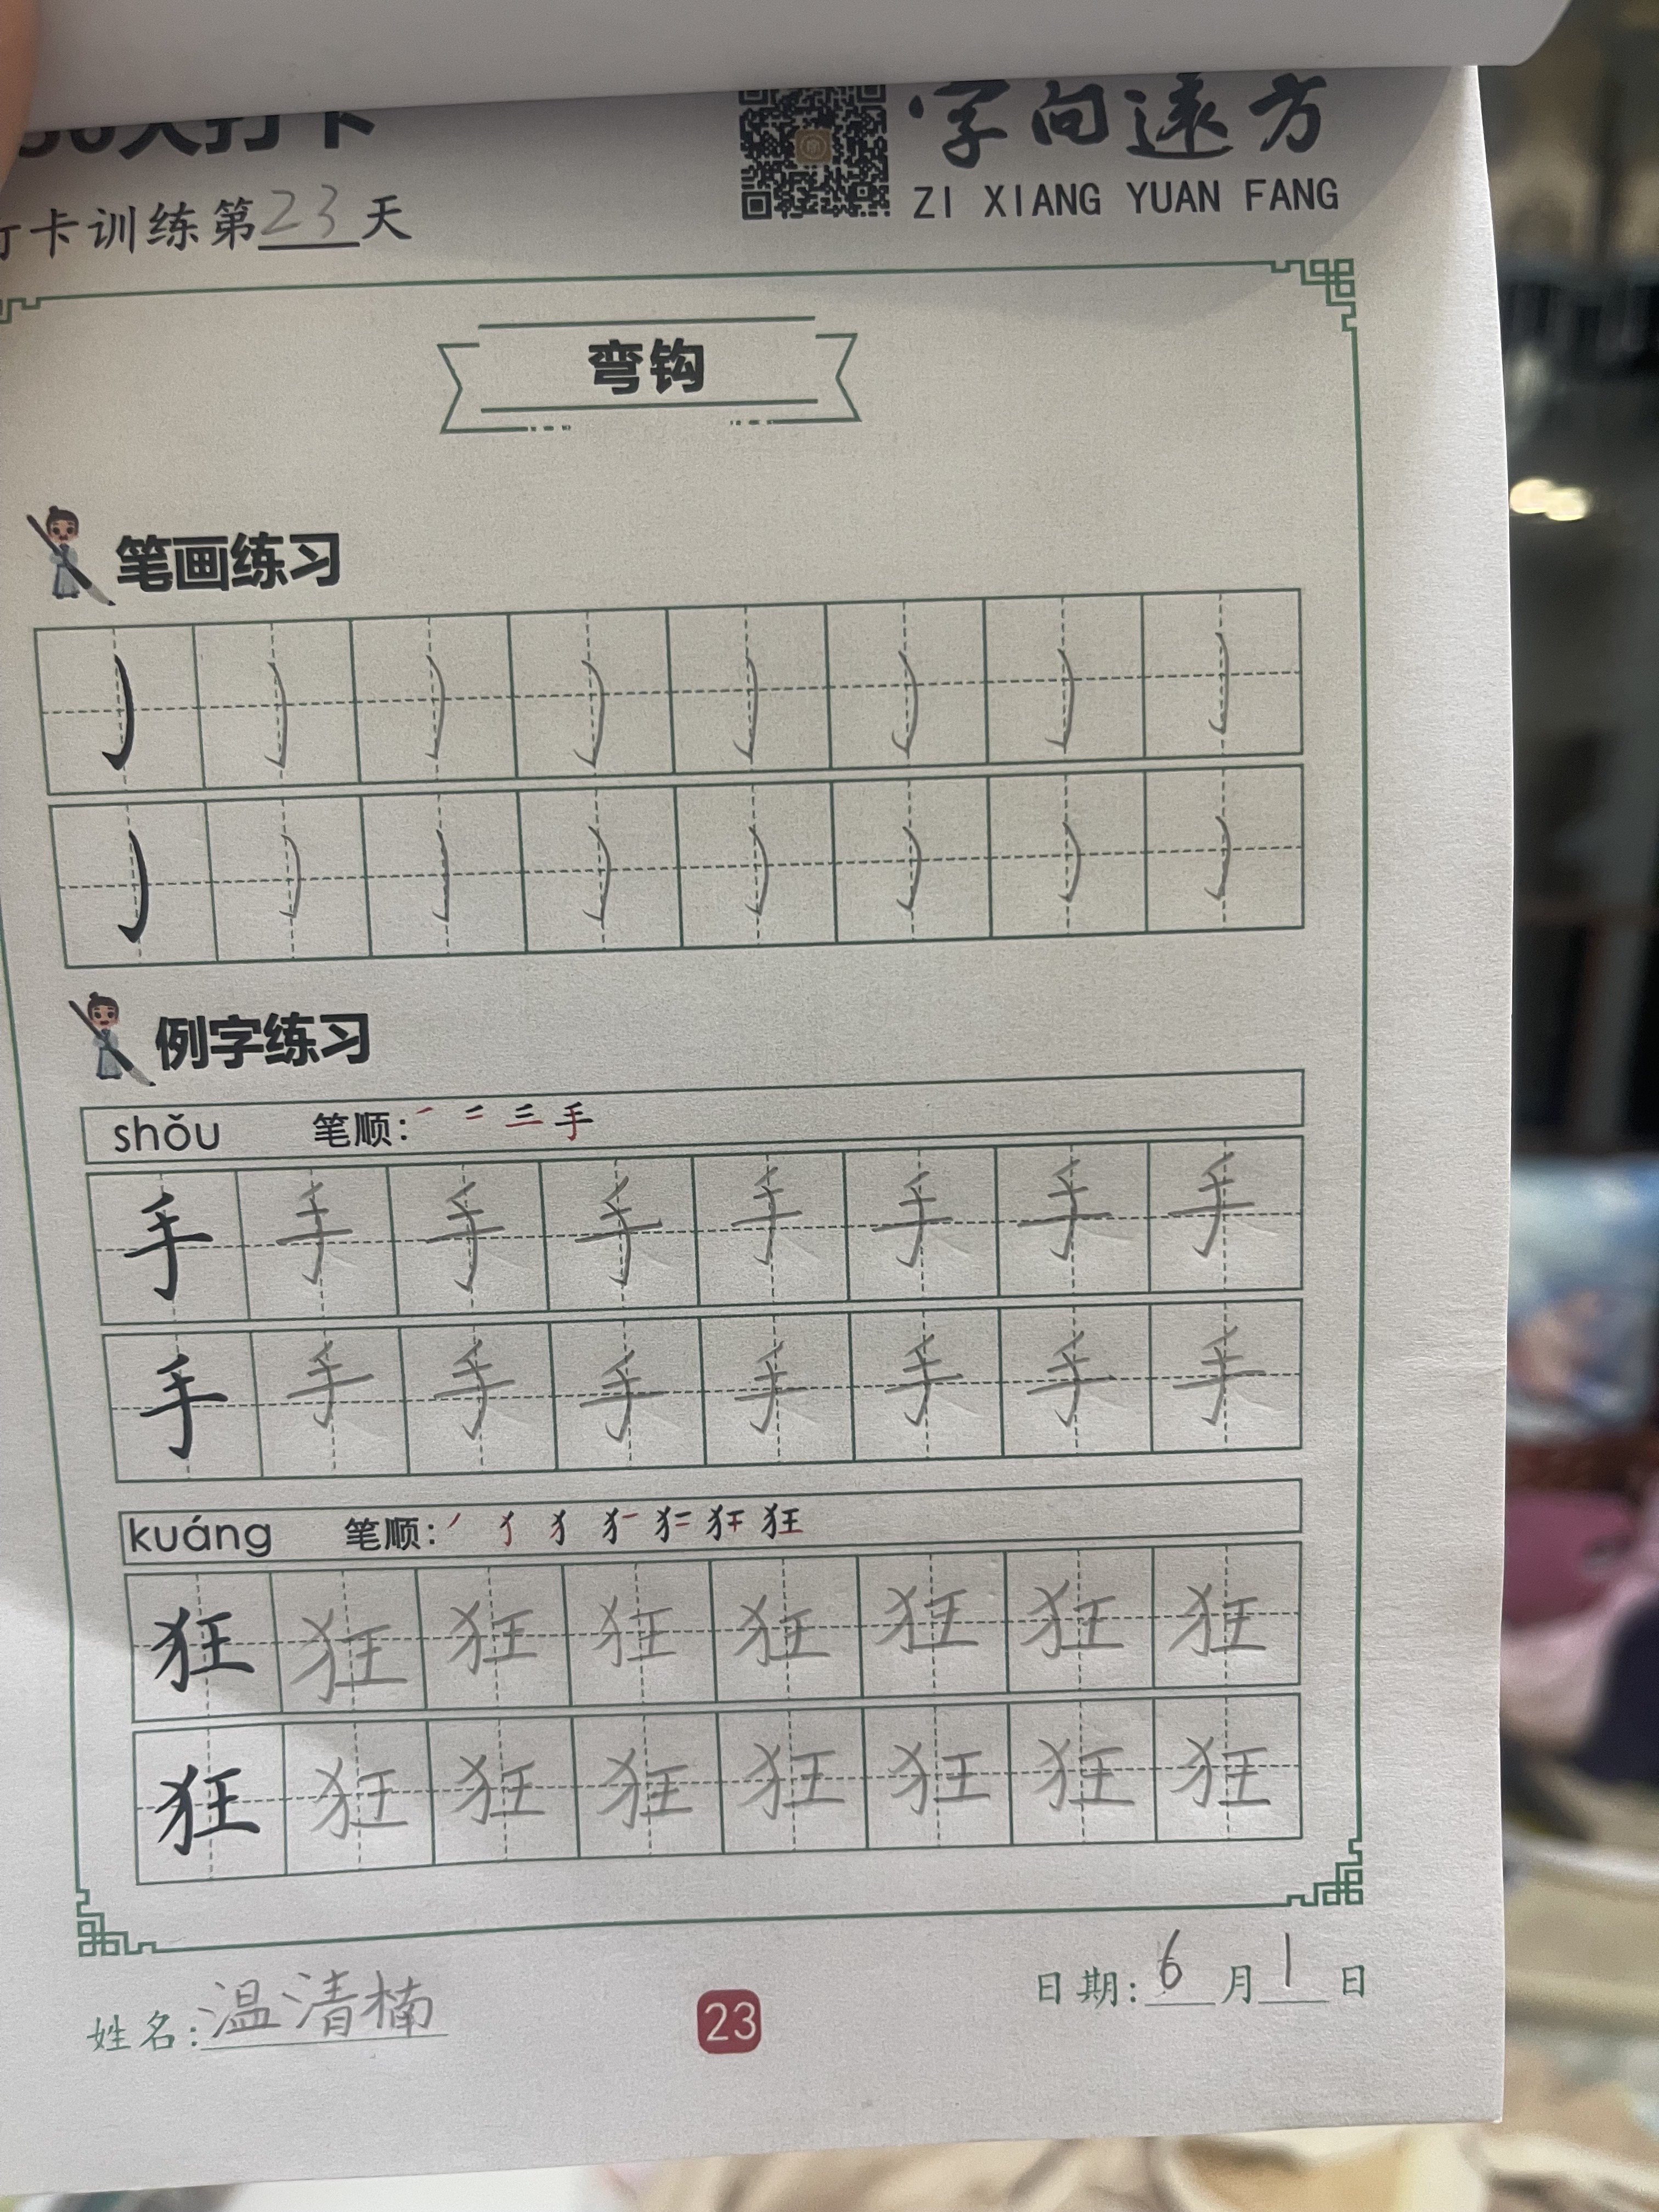 天打卡
字向遠方
ZI XIANG YUAN FANG
打卡训练第23天
弯钩
笔画练习
例字练习
shǒu 笔顺: 手
手 手 手 手 手 手 手 手
手 手 手 手 手 手 手 手
kuáng 笔顺: 狂
狂 狂 狂 狂 狂 狂 狂 狂
狂 狂 狂 狂 狂 狂 狂 狂
姓名: 温清楠
23
日期: 6月1日